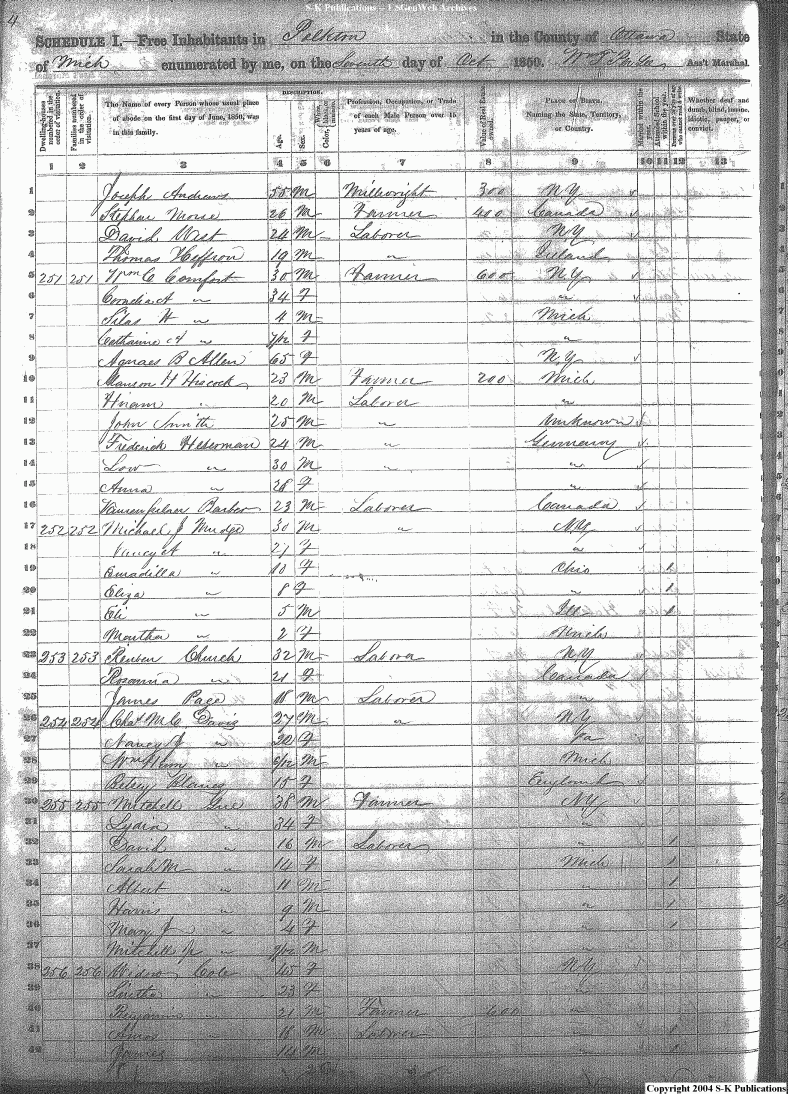 S-K Publications – USGenWeb Archives
4
SCHEDULE I.—Free Inhabitants in Polkton in the County of Ottawa State
of Mich enumerated by me, on the Seventh day of Oct 1850. Ass't Marshal.
Dwelling-houses numbered in the order of visitation.
Families numbered in the order of visitation.
The Name of every Person whose usual place of abode on the first day of June, 1850, was in this family.
DESCRIPTION.
Age.
Sex.
Color,
Profession, Occupation, or Trade of each Male Person over 15 years of age.
Value of Real Estate owned.
PLACE OF BIRTH. Naming the State, Territory, or Country.
Married within the year.
Attended School within the year.
Whether deaf and dumb, blind, insane, idiotic, pauper, or convict.
1 2 3 4 5 6 7 8 9 10 11 12 13
1 Joseph Andrews 55 M Millwright 300 NY
2 Stephen Morse 26 M Farmer 400 Canada
3 David West 24 M Laborer NY
4 Thomas Heffron 19 M " Ireland
5 251 251 Wm C Comfort 30 M Farmer 600 NY
6 Cornelia A " 34 F "
7 Silas H " 4 M Mich
8 Catharine A " 7/12 F "
9 B Allen 65 F NY
10 Manson H Hiscock 23 M Farmer 200 Mich
11 Hiram " 20 M Laborer "
12 John Smith 25 M " Unknown
13 Frederick Heserman 24 M " Germany
14 Low " 30 M " "
15 Anna " 28 F "
16 Barber 23 M Laborer Canada
17 252 252 Michael J Mudge 30 M " NY
18 Nancy A " 27 F "
19 " 10 F Ohio 1
20 Eliza " 8 F " 1
21 Eli " 5 M Ill 1
22 Martha " 2 F Mich
23 253 253 Reuben Church 32 M Labora NY
24 Rosanna " 21 F Canada
25 James Pace 18 M Laborer "
26 254 254 Chas M C Davis 27 M " NY
27 Nancy J " 20 F
28 Wm Henry " 6/12 M Mich
29 Betsey 15 F England
30 255 255 Mitchell 38 M Farmer NY
31 Lydia " 34 F "
32 David " 16 M Laborer " 1
33 Sarah M " 14 F Mich 1
34 Albert " 11 M " 1
35 Harris " 9 M " 1
36 Mary J " 4 F " 1
37 Mitchell Jr " 7/12 M "
38 256 256 Widow Cole 45 F NY
39 " 23 F "
40 Benjamin " 21 M Farmer 600 "
41 Amos " 18 M Laborer " 1
42 James " 14 M " 1
Copyright 2004 S-K Publications